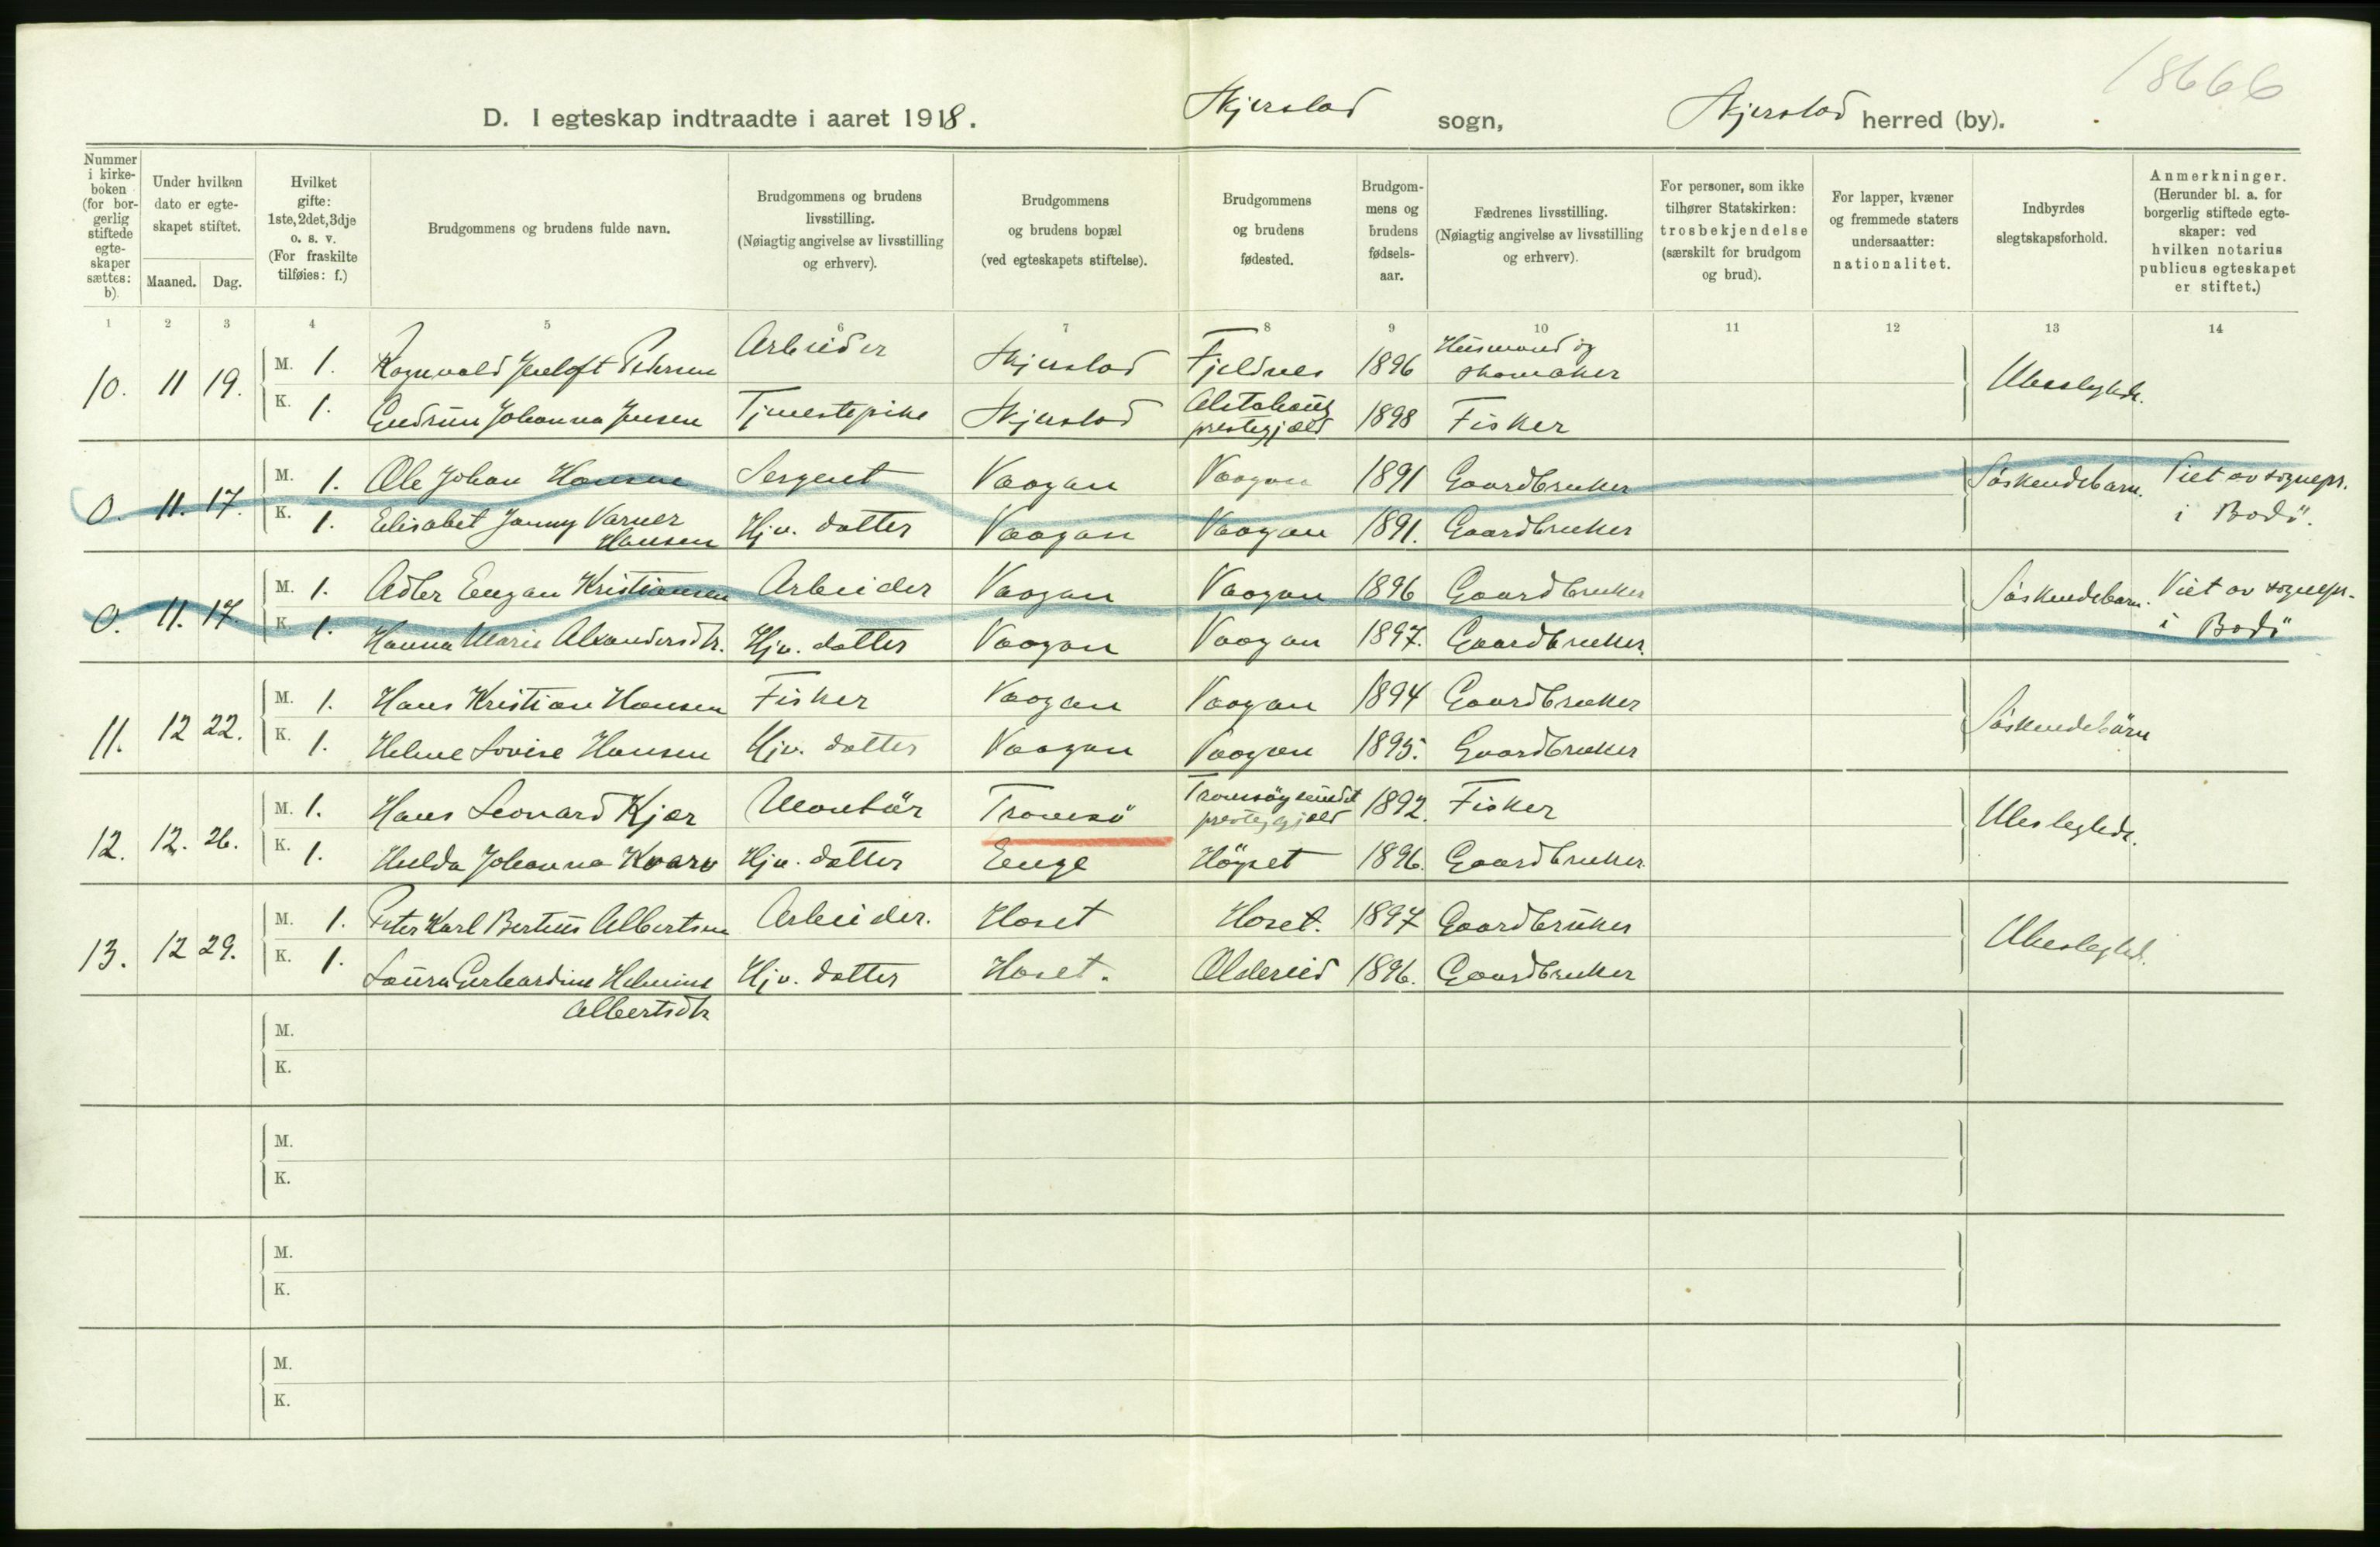 18666
D. I egteskap indtraadte i aaret 1918. Skjerstad sogn, Skjerstad herred (by).
Nummer i kirke-boken (for bor-gerlig stiftede egte-skaper sættes: b).
Under hvilken dato er egte-skapet stiftet.
Maaned. Dag.
Hvilket gifte: 1ste, 2det, 3dje o. s. v. (For fraskilte tilføies: f.)
Brudgommens og brudens fulde navn.
Brudgommens og brudens livsstilling. (Nøiagtig angivelse av livsstilling og erhverv).
Brudgommens og brudens bopæl (ved egteskapets stiftelse).
Brudgommens og brudens fødested.
Brudgom-mens og brudens fødsels-aar.
Fædrenes livsstilling. (Nøiagtig angivelse av livsstilling og erhverv).
For personer, som ikke tilhører Statskirken: trosbekjendelse (særskilt for brudgom og brud).
For lapper, kvæner og fremmede staters undersaatter: nationalitet.
Indbyrdes slegtskapsforhold.
Anmerkninger. (Herunder bl. a. for borgerlig stiftede egte-skaper: ved hvilken notarius publicus egteskapet er stiftet.)
1 2 3 4 5 6 7 8 9 10 11 12 13 14
10. 11 19. M. 1. Ragnvald Jenloft Pedersen Arbeider Skjerstad Fjeldnes 1896 Husmand og skomaker Ubeslegtede.
K. 1. Gudrun Johanna Jensen Tjenestepike Skjerstad Alstahaug prestegjæld 1898 Fisker
0. 11. 17. M. 1. Ole Johan Hansen Sergent Vaagan Vaagan 1891 Gaardbruker Søskendebarn. Viet av sognepr. i Bodö.
K. 1. Elisabet Janny Varner Hansen Hjv. datter Vaagan Vaagan 1891. Gaardbruker
0. 11. 17. M. 1. Adler Engan Kristiansen Arbeider Vaagan Vaagan 1896 Gaardbruker Søskendebarn. Viet av sognepr. i Bodö
K. 1. Hanna Marie Alexandersdtr. Hjv. datter Vaagan Vaagan 1897. Gaardbruker.
11. 12 22. M. 1. Hans Kristian Hansen Fisker Vaagan Vaagan 1894 Gaardbruker Søskendebarn
K. 1. Helene Lovise Hansen Hjv. datter Vaagan Vaagan 1895. Gaardbruker
12. 12. 26. M. 1. Hans Leonard Kjær Montör Tromsö Tromsöysundet prestegjæld 1892. Fisker Ubeslegtede.
K. 1. Hulda Johanna Kvarv Hjv. datter Enge Höyset 1896. Gaardbruker.
13. 12 29. M. 1. Peter Karl Berteus Albertsen Arbeider. Hoset Hoset. 1897 Gaardbruker Ubeslegted.
K. 1. Laura Gerhardine Helmine Albertsdtr Hjv. datter Hoset. Aldereid 1896. Gaardbruker
M.
K.
M.
K.
M.
K.
M.
K.